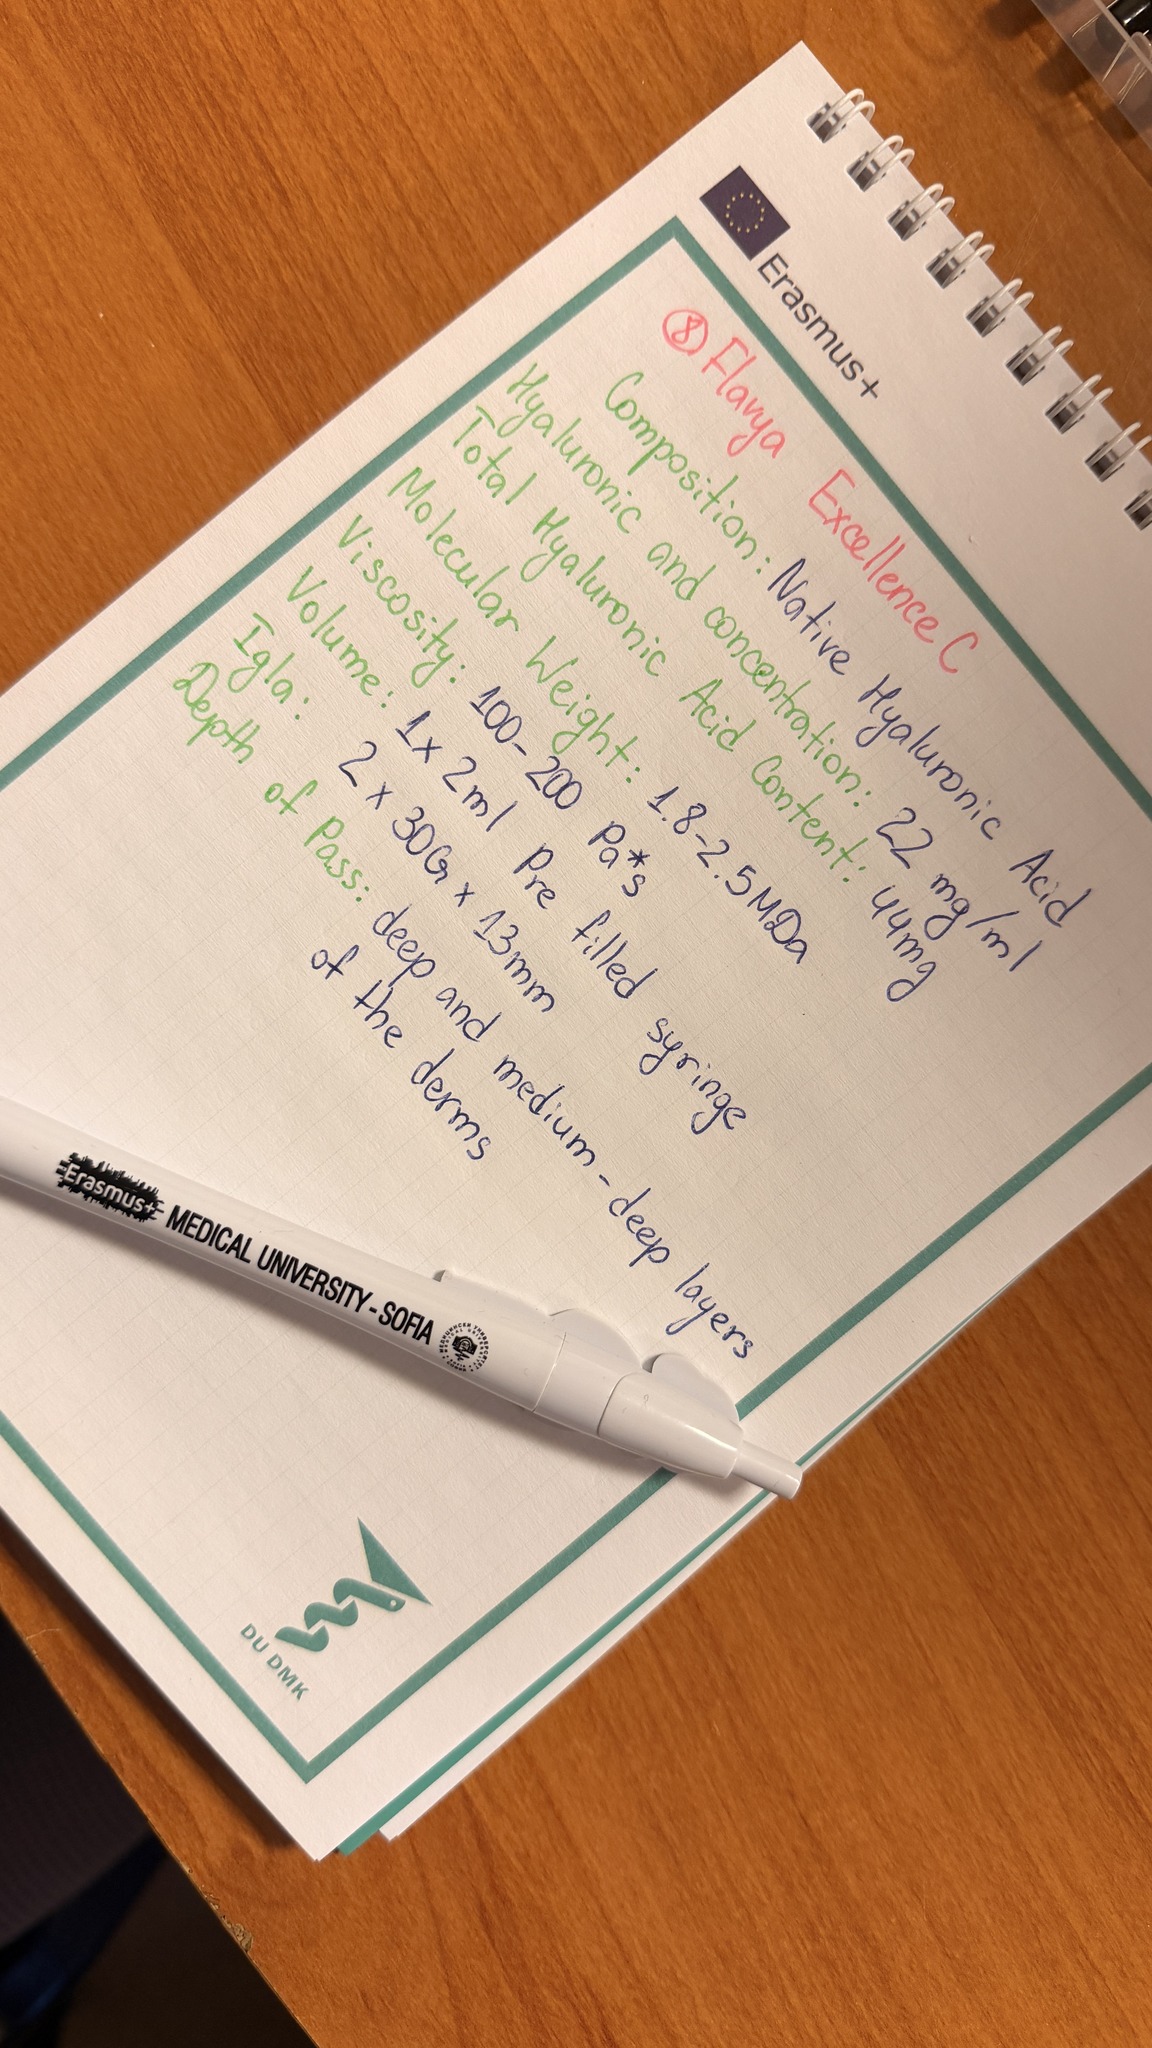 Erasmus+
8 Flarya Excellence C
Composition: Native Hyaluronic Acid
Hyaluronic and concentration: 22 mg/ml
Total Hyaluronic Acid Content: 44mg
Molecular Weight: 1.8-2.5MDa
Viscosity: 100-200 Pa*s
Volume: 1x 2ml Pre filled syringe
Igla: 2 x 30G x 13mm
Depth of Pass: deep and medium-deep layers
of the derms
Erasmus+ MEDICAL UNIVERSITY-SOFIA
DU DMK